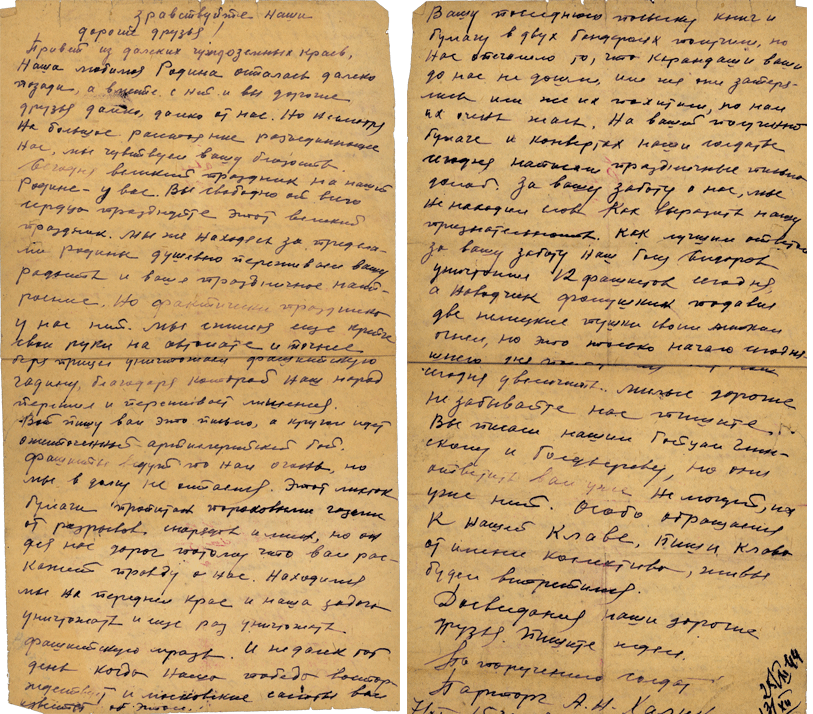 Здравствуйте наши
дорогие друзья!
Привет из далеких чужоземных краев,
Наша любимая Родина осталась далеко
позади, а вместе с ней и вы дорогие
друзья далеко, далеко от нас. Но несмотря
на большое расстояние разъединяющее
нас, мы чувствуем вашу близость.
Сегодня великий праздник на нашей
Родине - у вас. Вы свободно от всего
сердца празднуйте этот великий
праздник. Мы же находясь за предела-
ми родины душевно переживаем вашу
радость и ваше праздничное наст-
роение. Но фактически праздника
у нас нет. Мы сжимая еще крепче
свои руки на автомате и точнее
беря прицел уничтожаем фашистскую
гадину, благодаря которой наш народ
терпел и переживает лишения.
Вот пишу вам это письмо, а кругом идет
ожесточенный артиллерийский бой.
Фашисты ведут по нам огонь, но
мы в долгу не остаемся. Этот листок
бумаги пропитан пороховыми газами
от разрывов снарядов и мин, но он
для нас дорог потому что вам рас-
кажет правду о нас. Находимся
мы на переднем крае и наша задача
уничтожать и еще раз уничтожать
фашистскую мразь. И недалек тот
день когда наша победа востор-
жествует и московские салюты вас
известят об этом.
Вашу последнюю посылку книг и
бумагу в двух бандеролях получили, но
нас опечалило то, что карандаши ваши
до нас не дошли, или же они затеря-
лись или же их похитили, но нам
их очень жаль. На вашей полученной
бумаге и конвертах наши солдаты
сегодня написали праздничные письма
домой. За вашу заботу о нас, мы
не находим слов как выразить нашу
признательность. Как лучший ответ
за вашу заботу наш боец Сидоров
уничтожил 12 фашистов сегодня,
а наводчик подавил
две немецкие пушки своим
огнем, но это только начало сегодня-
шнего дня
сегодня увеличить. Милые дорогие
не забывайте нас пишите.
Вы писали нашим бойцам
скому и, но они
ответить вам уже не могут, их
уже нет. Особо обращаемся
к нашей Клаве, пиши Клава
от имени коллектива, живы
будем встретимся.
Досвидания наши дорогие
друзья. Пишите ждем.
По поручению солдат
Парторг А.Н.